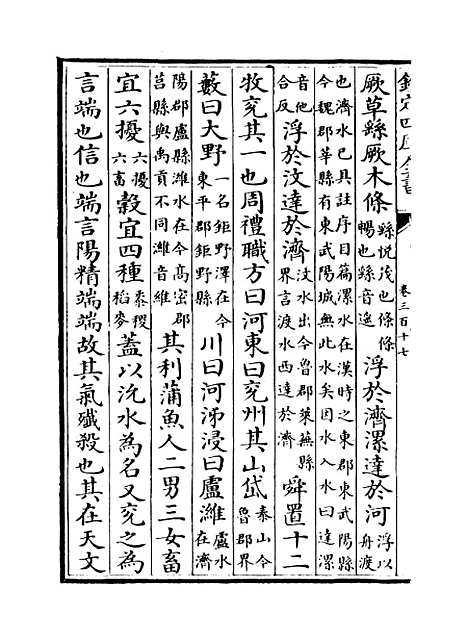 欽定四庫全書 卷三百十七
厥草繇厥木條繇悦茂也條條暢也繇音遥浮於濟漯達於河浮以舟渡
也濟水已具註序目篇漯水在漢時之東郡東武陽縣今魏郡莘縣有東武陽城無此水矣因水入水曰達漯
音他合反浮於汶達於濟汶水出今魯郡萊蕪縣界言渡水西達於濟舜置十二
牧兖其一也周禮職方曰河東曰兖州其山岱泰山今魯郡界
藪曰大野一名鉅野澤在今東平郡鉅野縣川曰河泲浸曰盧濰盧水在濟
陽郡盧縣濰水在今髙密郡莒縣與禹貢不同濰音維其利蒲魚人二男三女畜
宜六擾六擾六畜榖宜四種黍稷稻麥蓋以沇水為名又兖之為
言端也信也端言陽精端端故其氣殱殺也其在天文